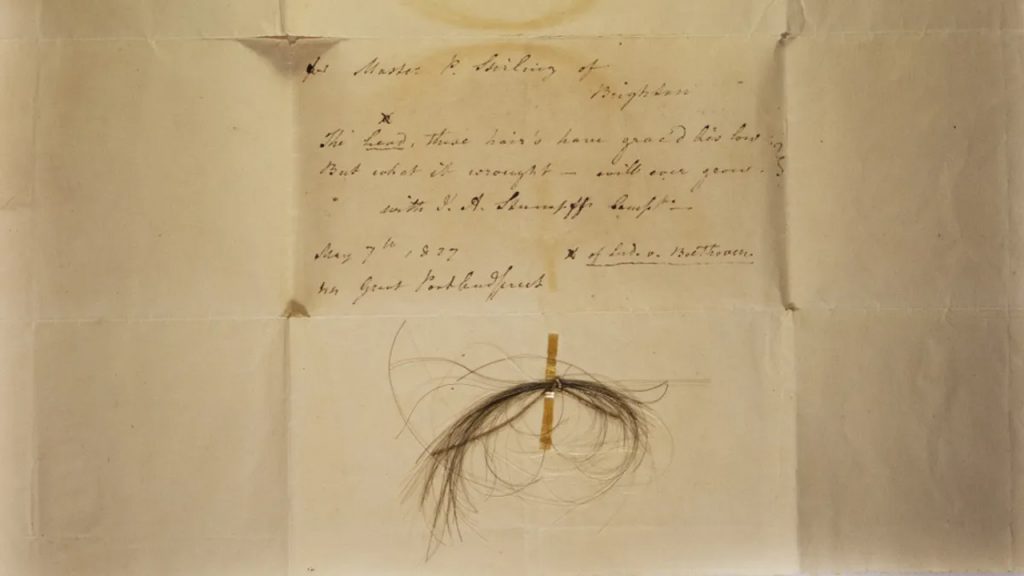 for Master P. Stirling of
Brighton
x
The head, these hair's have grac'd his low
But what it wrought — will ever grow.
with J. A. Stumpff's Compts.
May 7th 1827
x of Lud. v. Beethoven.
Great Portland Street